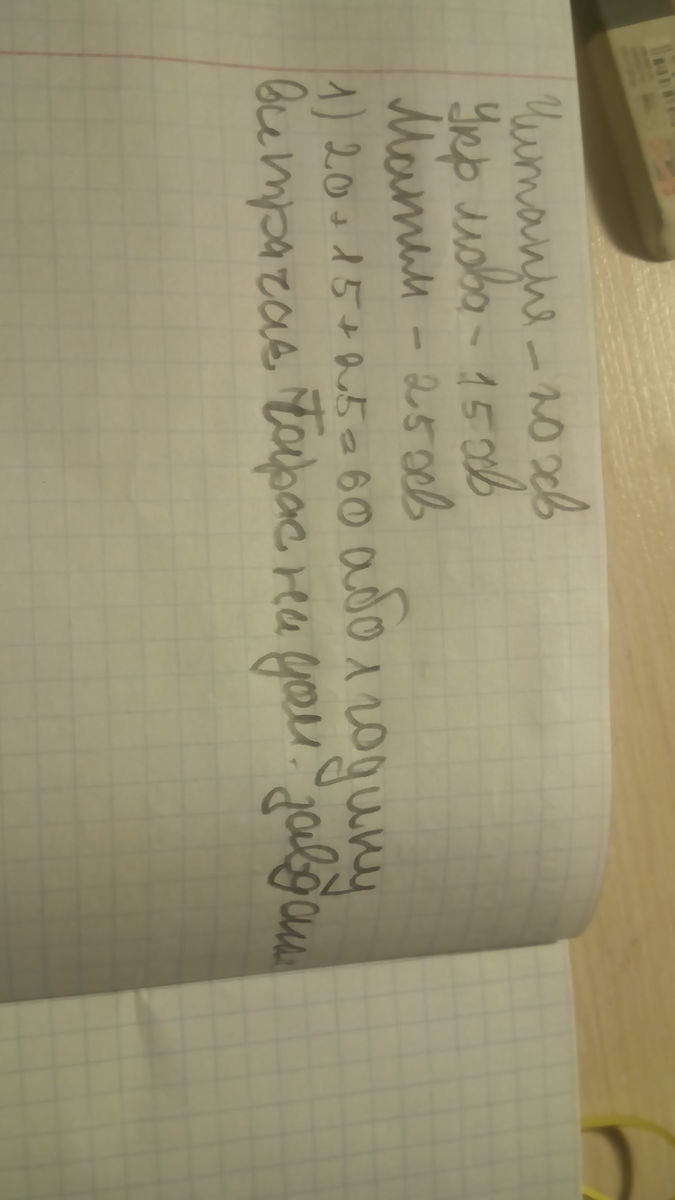 Читання - 20 хв
Укр мова - 15 хв
Матем - 25 хв
1) 20 + 15 + 25 = 60 або 1 годину
витрачає Тарас на дом. завдання